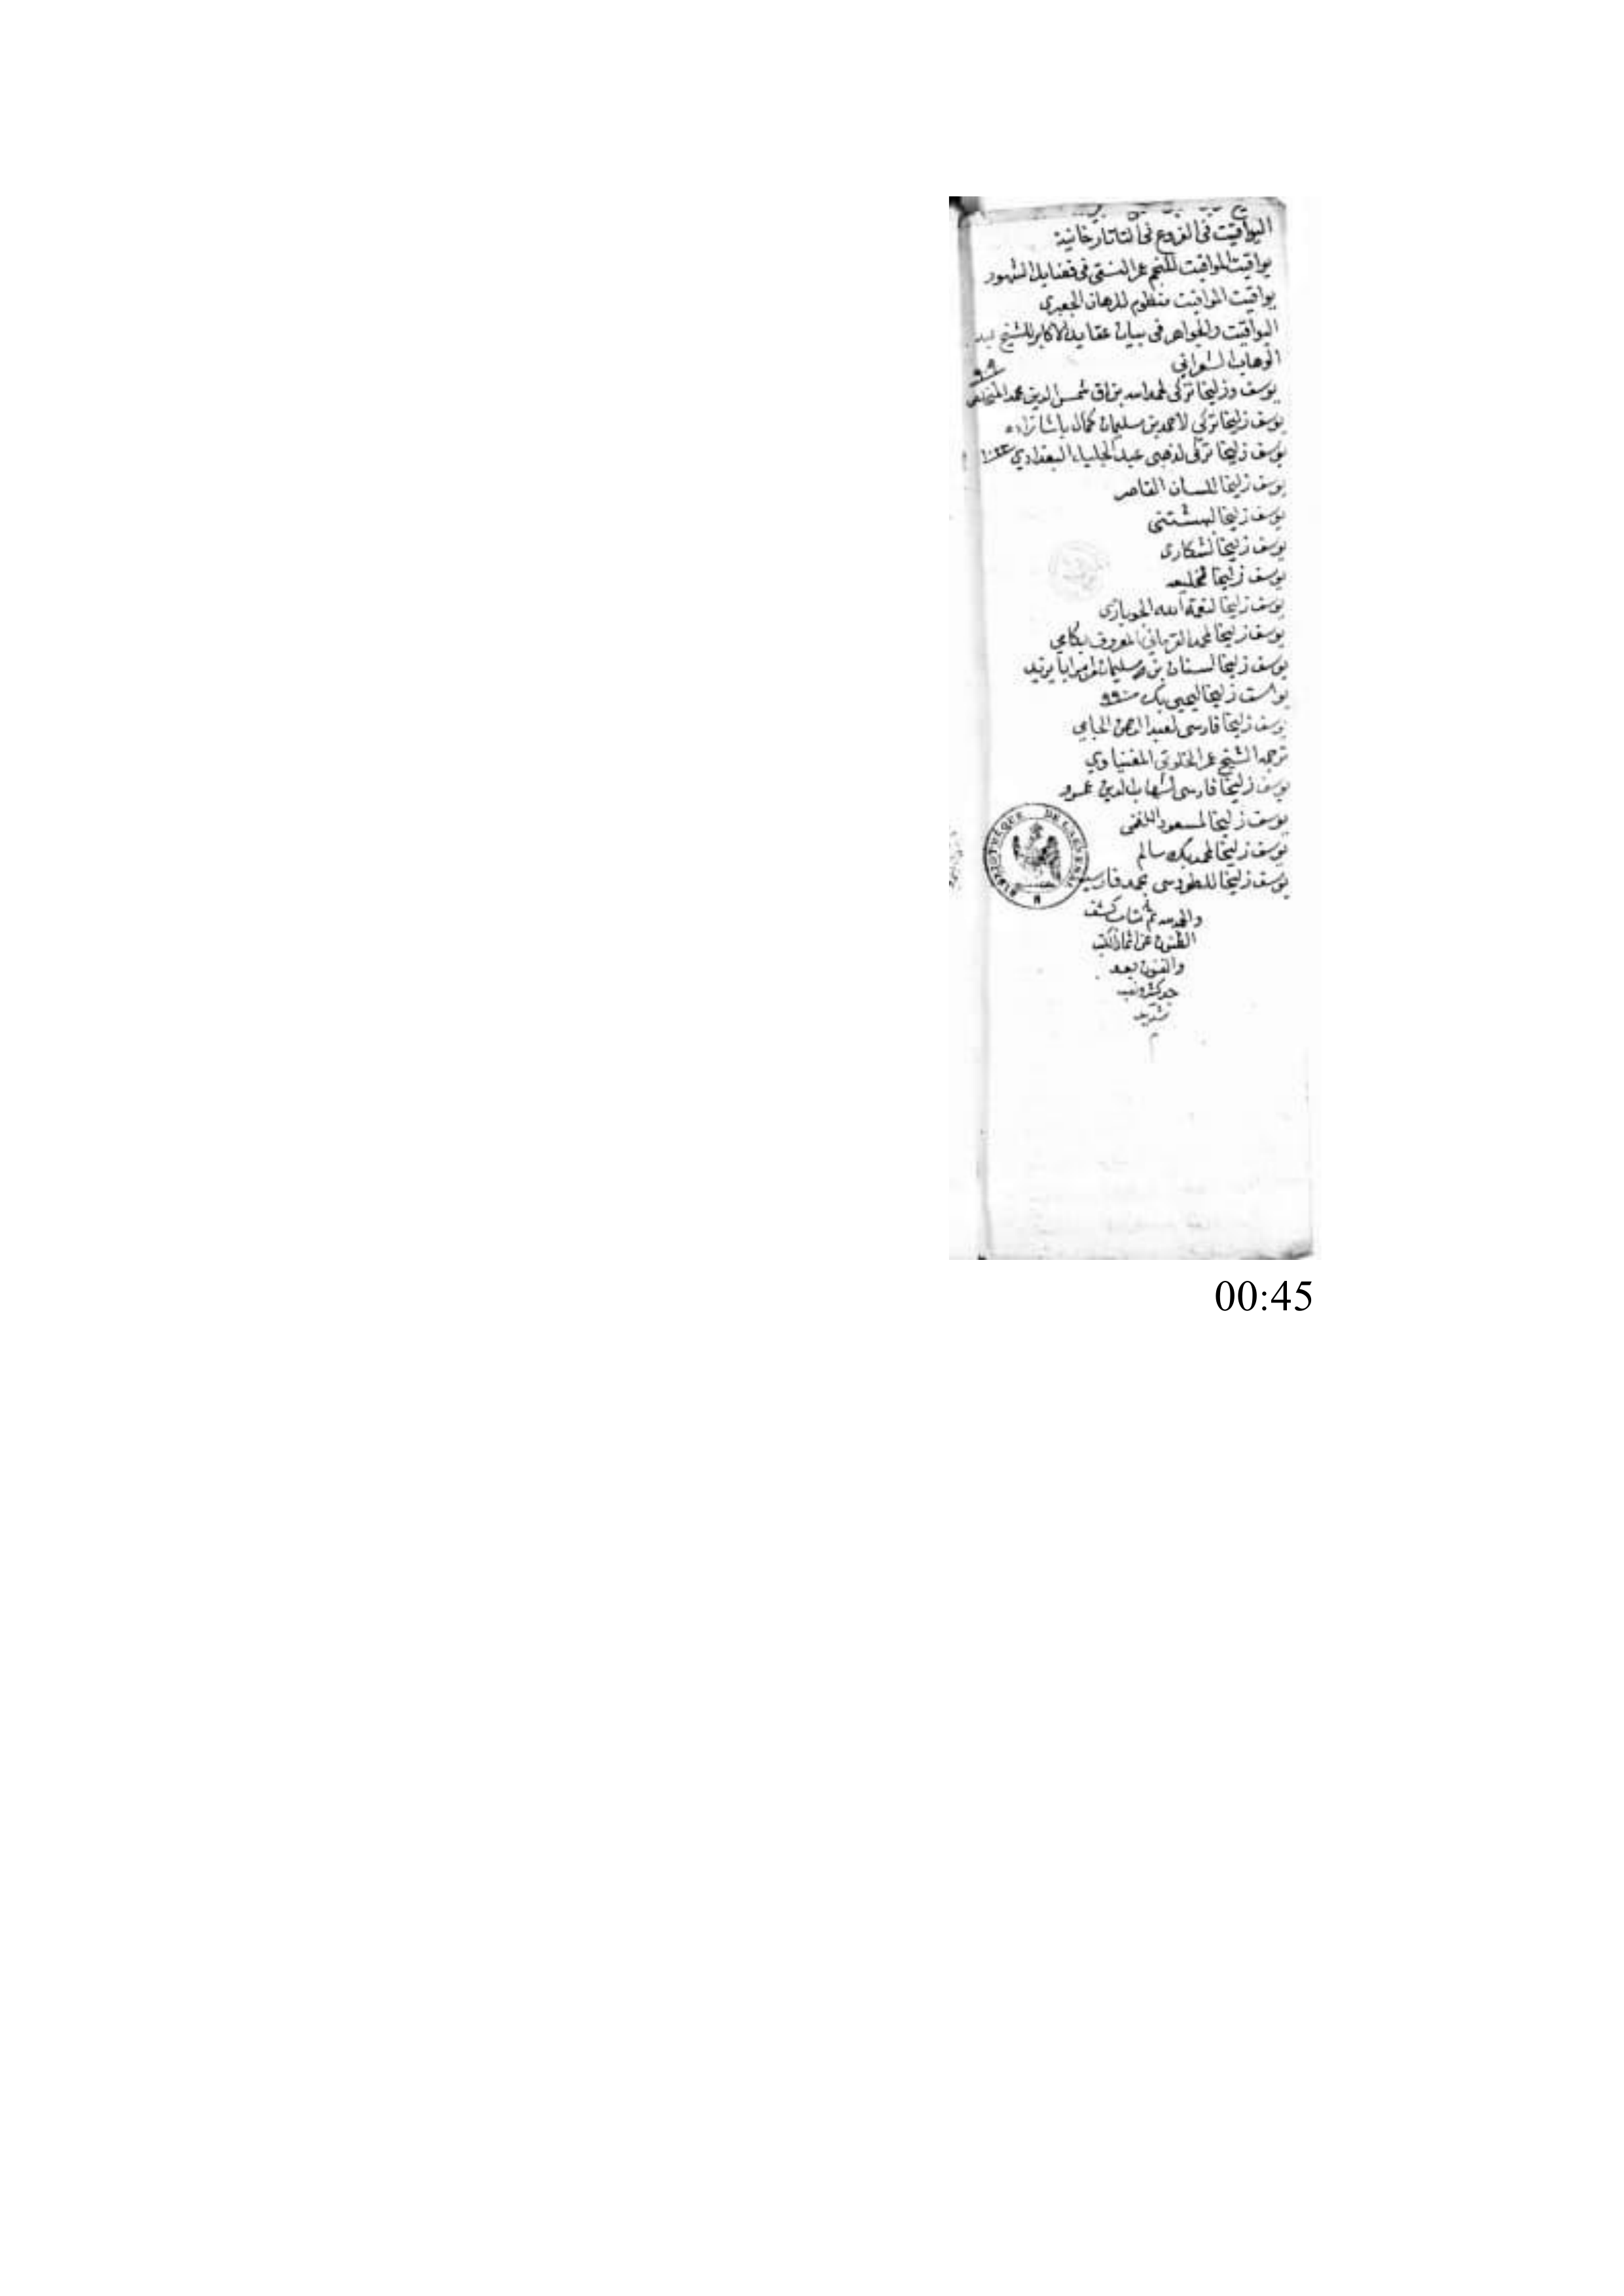 اليواقيت في الفروع في التاتارخانية
يواقيت المواقيت للنجم عمر النسفي في فضايل الشهور
يواقيت المواقيت منظوم للبرهان الجعبري
اليواقيت والجواهر في بيان عقايد الاكابر للشيخ عبد
الوهاب الشعراني
يوسف وزليخا تركي لحمد الله بن اق شمس الدين محمد
٩٠٩
يوسف زليخا تركي لاحمد بن سليمان كمال باشا زاده
يوسف زليخا تركي لذهبي عبد البغدادي
يوسف زليخا للسان القاصر
يوسف زليخا لبهشتي
يوسف زليخا لشكاري
يوسف زليخا لخليفه
يوسف زليخا لنعمة الله الحويازي
يوسف زليخا لمحمد المعروف بكامي
يوسف زليخا لسنان بن سليمان
يوسف زليخا ليحيى بك ٩٩٠
يوسف زليخا فارسي لعبد الرحمن الجامي
ترجمه الشيخ عمر الخلوتي المغنيساوي
يوسف زليخا فارسي لشهاب الدين عمعق
يوسف زليخا لمسعود القمي
يوسف زليخا لمحمد بك سالم
يوسف زليخا للطوسي محمد فارسي
BIBLIOTHÈQUE DE L'ARSENAL
والحمد لله تم كتاب كشف
الظنون عن اثمار الكتب
والفنون بعد
جد كثير وتعب
شديد
م
00:45